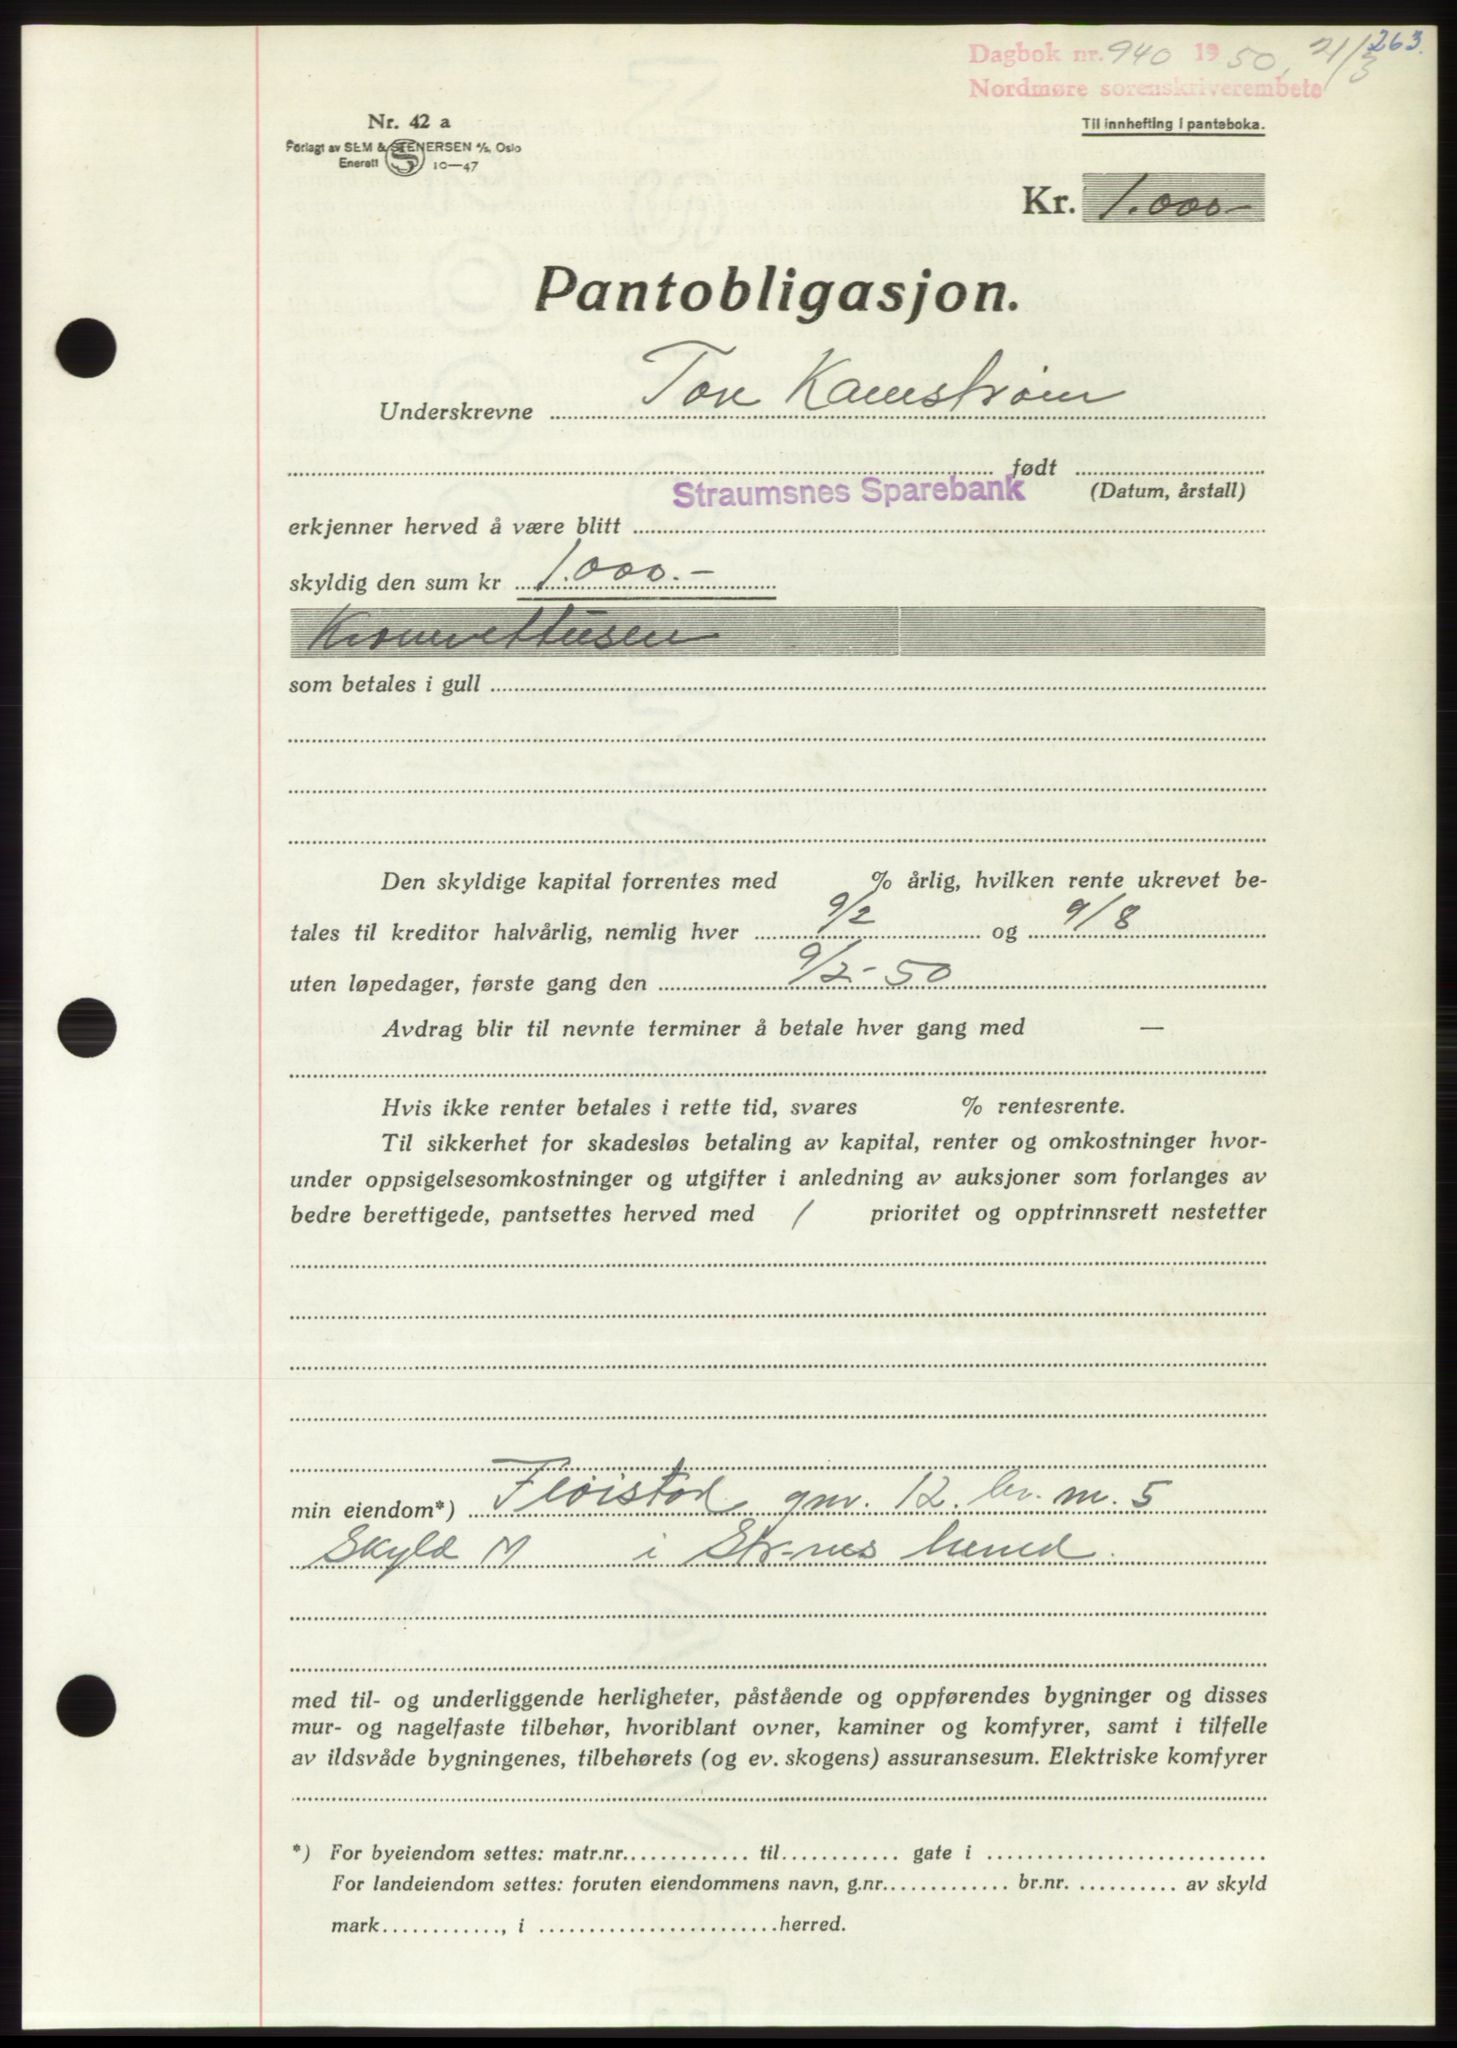 263.
Dagbok nr. 940 1950, 21/3
Nordmøre sorenskriverembete
Nr. 42 a
Til innhefting i panteboka.
Forlagt av SEM & STENERSEN A/S, Oslo
Enerett S 10—47
Kr. 1.000-
Pantobligasjon.
Underskrevne Tore Kamstrøm
født
Straumsnes Sparebank (Datum, årstall)
erkjenner herved å være blitt
skyldig den sum kr 1.000.-
Kroneettusen
som betales i gull
Den skyldige kapital forrentes med % årlig, hvilken rente ukrevet be-
tales til kreditor halvårlig, nemlig hver 9/2 og 9/8
uten løpedager, første gang den 9/2-50
Avdrag blir til nevnte terminer å betale hver gang med —
Hvis ikke renter betales i rette tid, svares % rentesrente.
Til sikkerhet for skadesløs betaling av kapital, renter og omkostninger hvor-
under oppsigelsesomkostninger og utgifter i anledning av auksjoner som forlanges av
bedre berettigede, pantsettes herved med 1 prioritet og opptrinnsrett nestetter
min eiendom*) Fløistad gnr. 12. br. nr. 5
Skyld M i Str-nes herred.
med til- og underliggende herligheter, påstående og oppførendes bygninger og disses
mur- og nagelfaste tilbehør, hvoriblant ovner, kaminer og komfyrer, samt i tilfelle
av ildsvåde bygningenes, tilbehørets (og ev. skogens) assuransesum. Elektriske komfyrer
*) For byeiendom settes: matr.nr. til gate i
For landeiendom settes: foruten eiendommens navn, g.nr. br.nr. av skyld
mark , i herred.